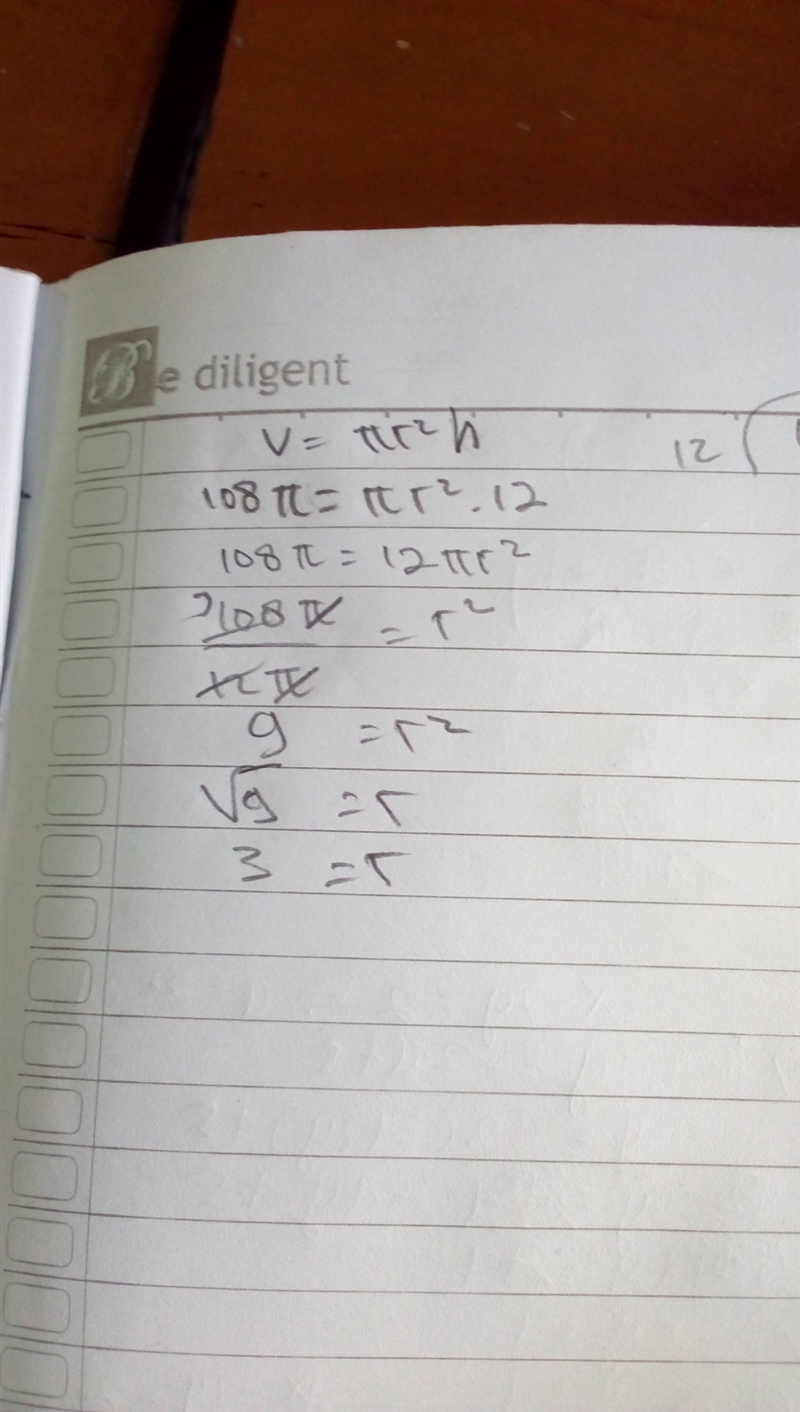 Be diligent
V = πr²h
12
108π = πr².12
108π = 12πr²
9 108π = r²
12π
9 = r²
√9 = r
3 = r